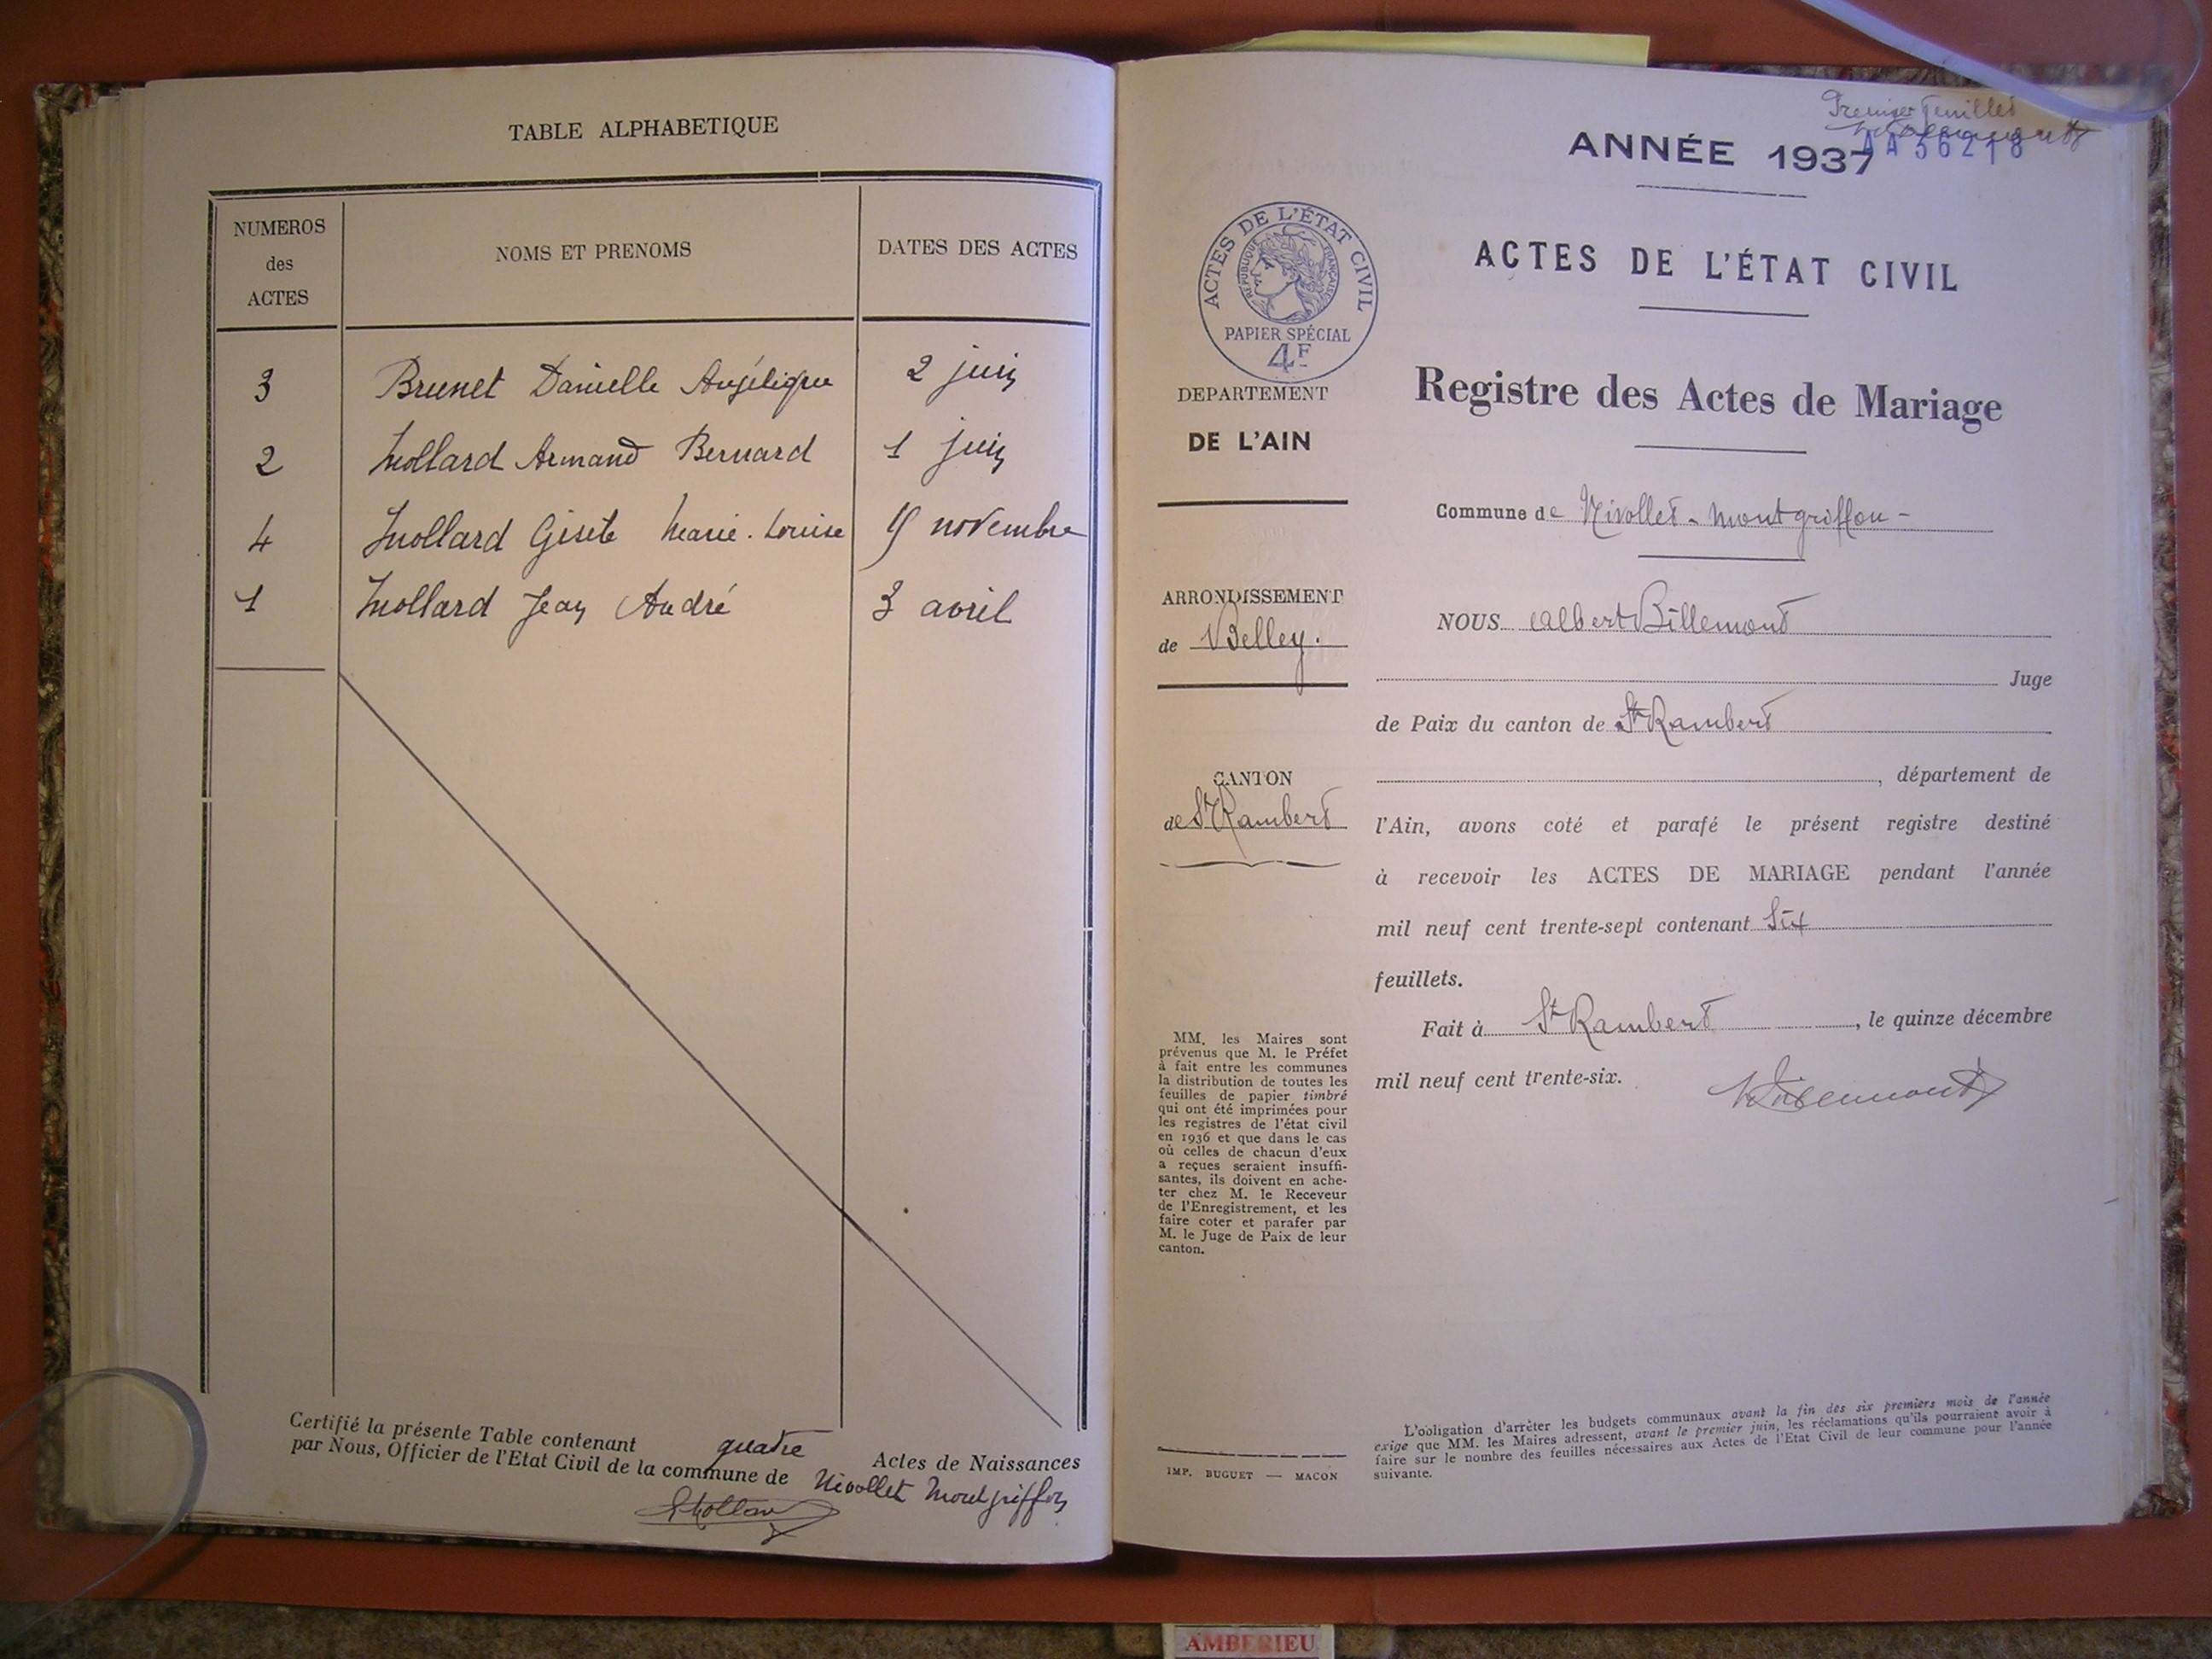 TABLE ALPHABETIQUE
NUMEROS
des
ACTES
NOMS ET PRENOMS
DATES DES ACTES
3 Brunet Danielle Angélique 2 juin
2 Mollard Armand Bernard 1 juin
4 Mollard Gisèle Marie-Louise novembre
1 Mollard Jean André 3 avril
Certifié la présente Table contenant quatre Actes de Naissances
par Nous, Officier de l'Etat Civil de la commune de Nivollet Montgriffon
Premier feuillet
AA56218
ANNÉE 1937
ACTES DE L'ÉTAT CIVIL
RÉPUBLIQUE FRANÇAISE
PAPIER SPÉCIAL
4F
DEPARTEMENT
DE L'AIN
ARRONDISSEMENT
de Belley.
CANTON
de St Rambert
MM. les Maires sont
prévenus que M. le Préfet
à fait entre les communes
la distribution de toutes les
feuilles de papier timbré
qui ont été imprimées pour
les registres de l'état civil
en 1936 et que dans le cas
où celles de chacun d'eux
a reçues seraient insuffi-
santes, ils doivent en ache-
ter chez M. le Receveur
de l'Enregistrement, et les
faire coter et parafer par
M. le Juge de Paix de leur
canton.
IMP. BUGUET — MACON
ACTES DE L'ÉTAT CIVIL
Registre des Actes de Mariage
Commune de Nivollet-Montgriffon-
NOUS Albert Billemont
Juge
de Paix du canton de St Rambert
, département de
l'Ain, avons coté et parafé le présent registre destiné
à recevoir les ACTES DE MARIAGE pendant l'année
mil neuf cent trente-sept contenant Six
feuillets.
Fait à St Rambert, le quinze décembre
mil neuf cent trente-six.
L'obligation d'arrêter les budgets communaux avant la fin des six premiers mois de l'année
exige que MM. les Maires adressent, avant le premier juin, les réclamations qu'ils pourraient avoir à
faire sur le nombre des feuilles nécessaires aux Actes de l'Etat Civil de leur commune pour l'année
suivante.
AMBERIEU